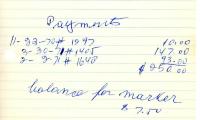 Payments
11-23-70 # 1397 10.00
2-30-71 # 1405 147.00
2-2-71 # 1640 93.00
$250.00
balance for marker
$ 7.50